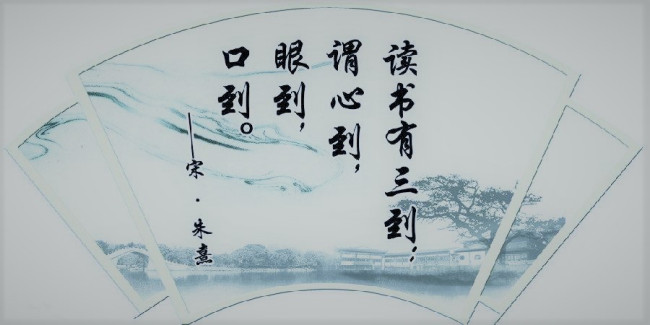 读书有三到，
谓心到，
眼到，
口到。
——宋·朱熹